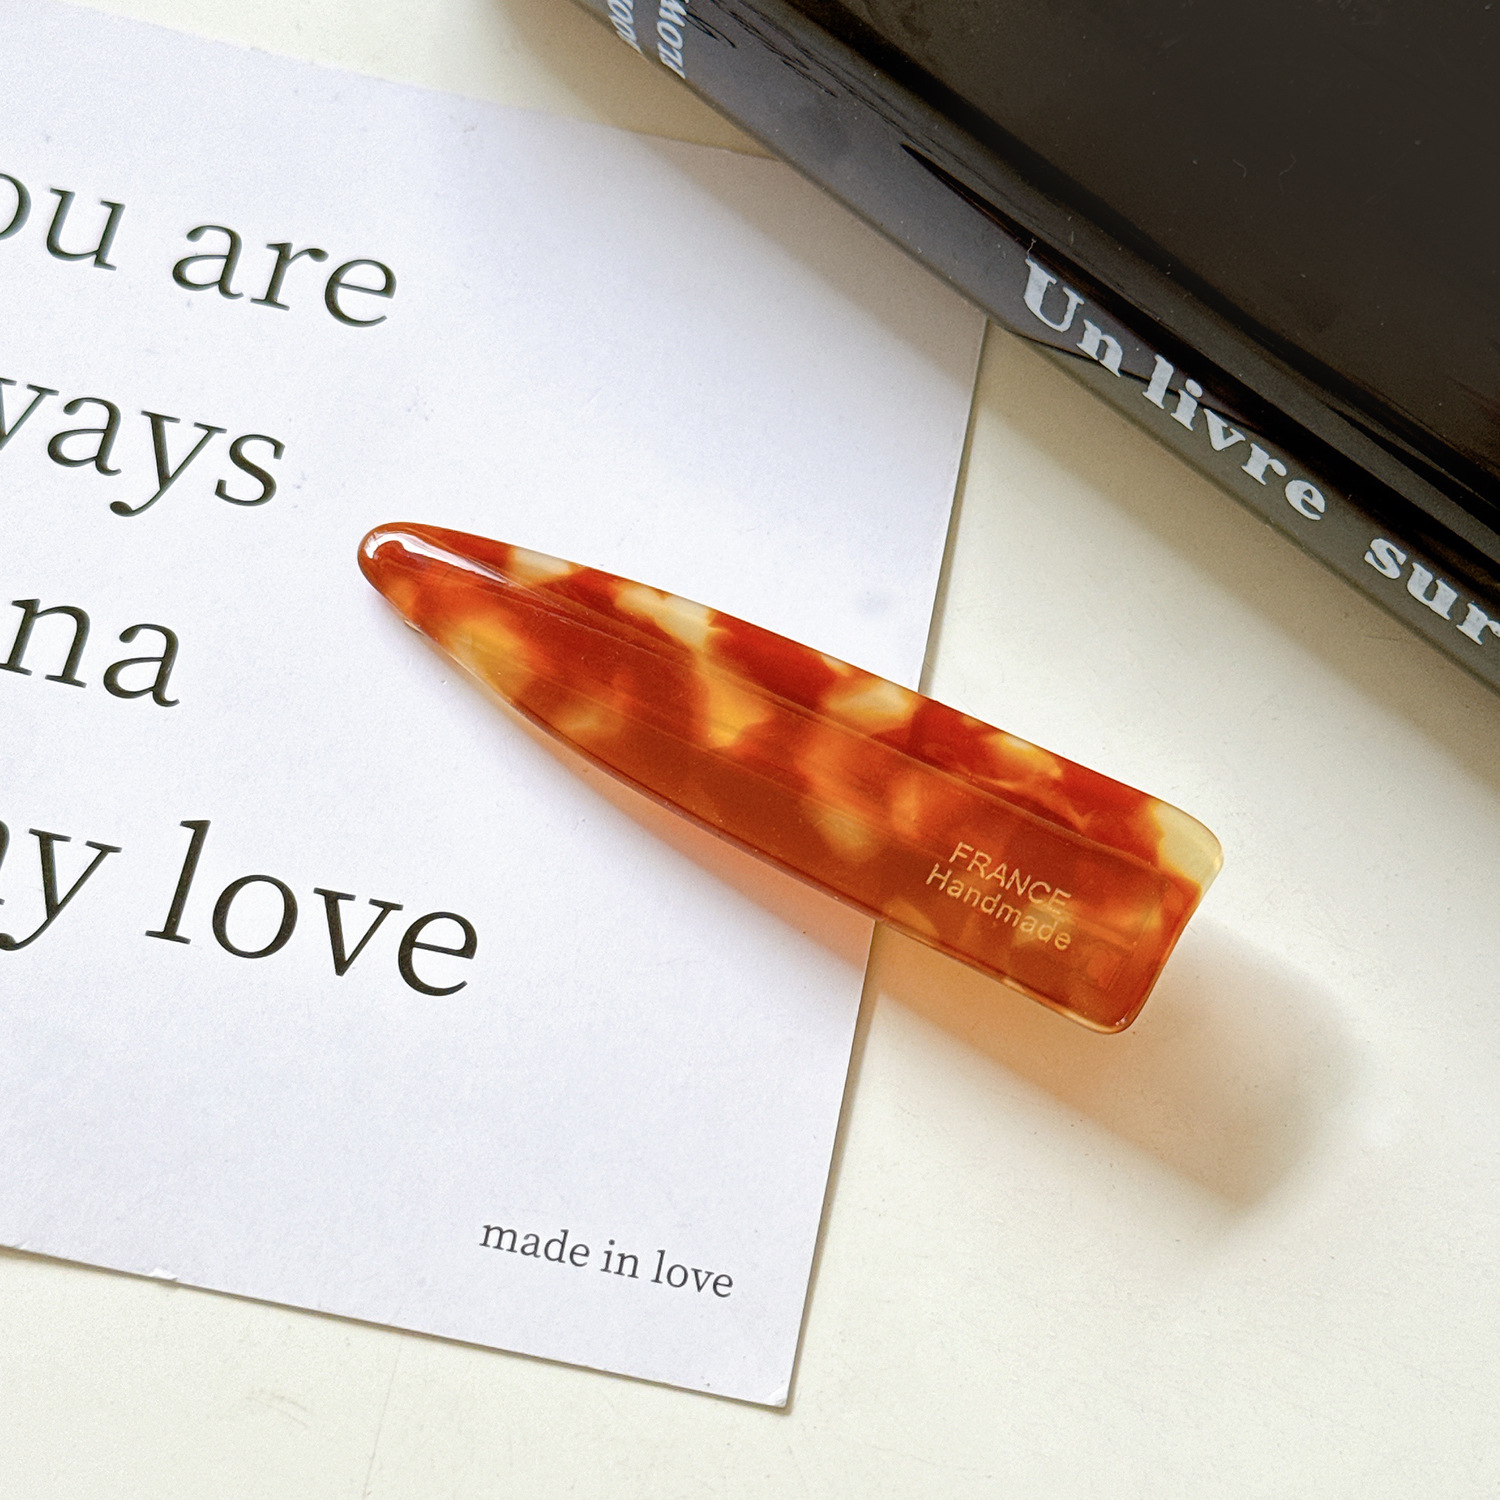 ou are
ways
na
y love
made in love
FRANCE
Handmade
Un livre sur